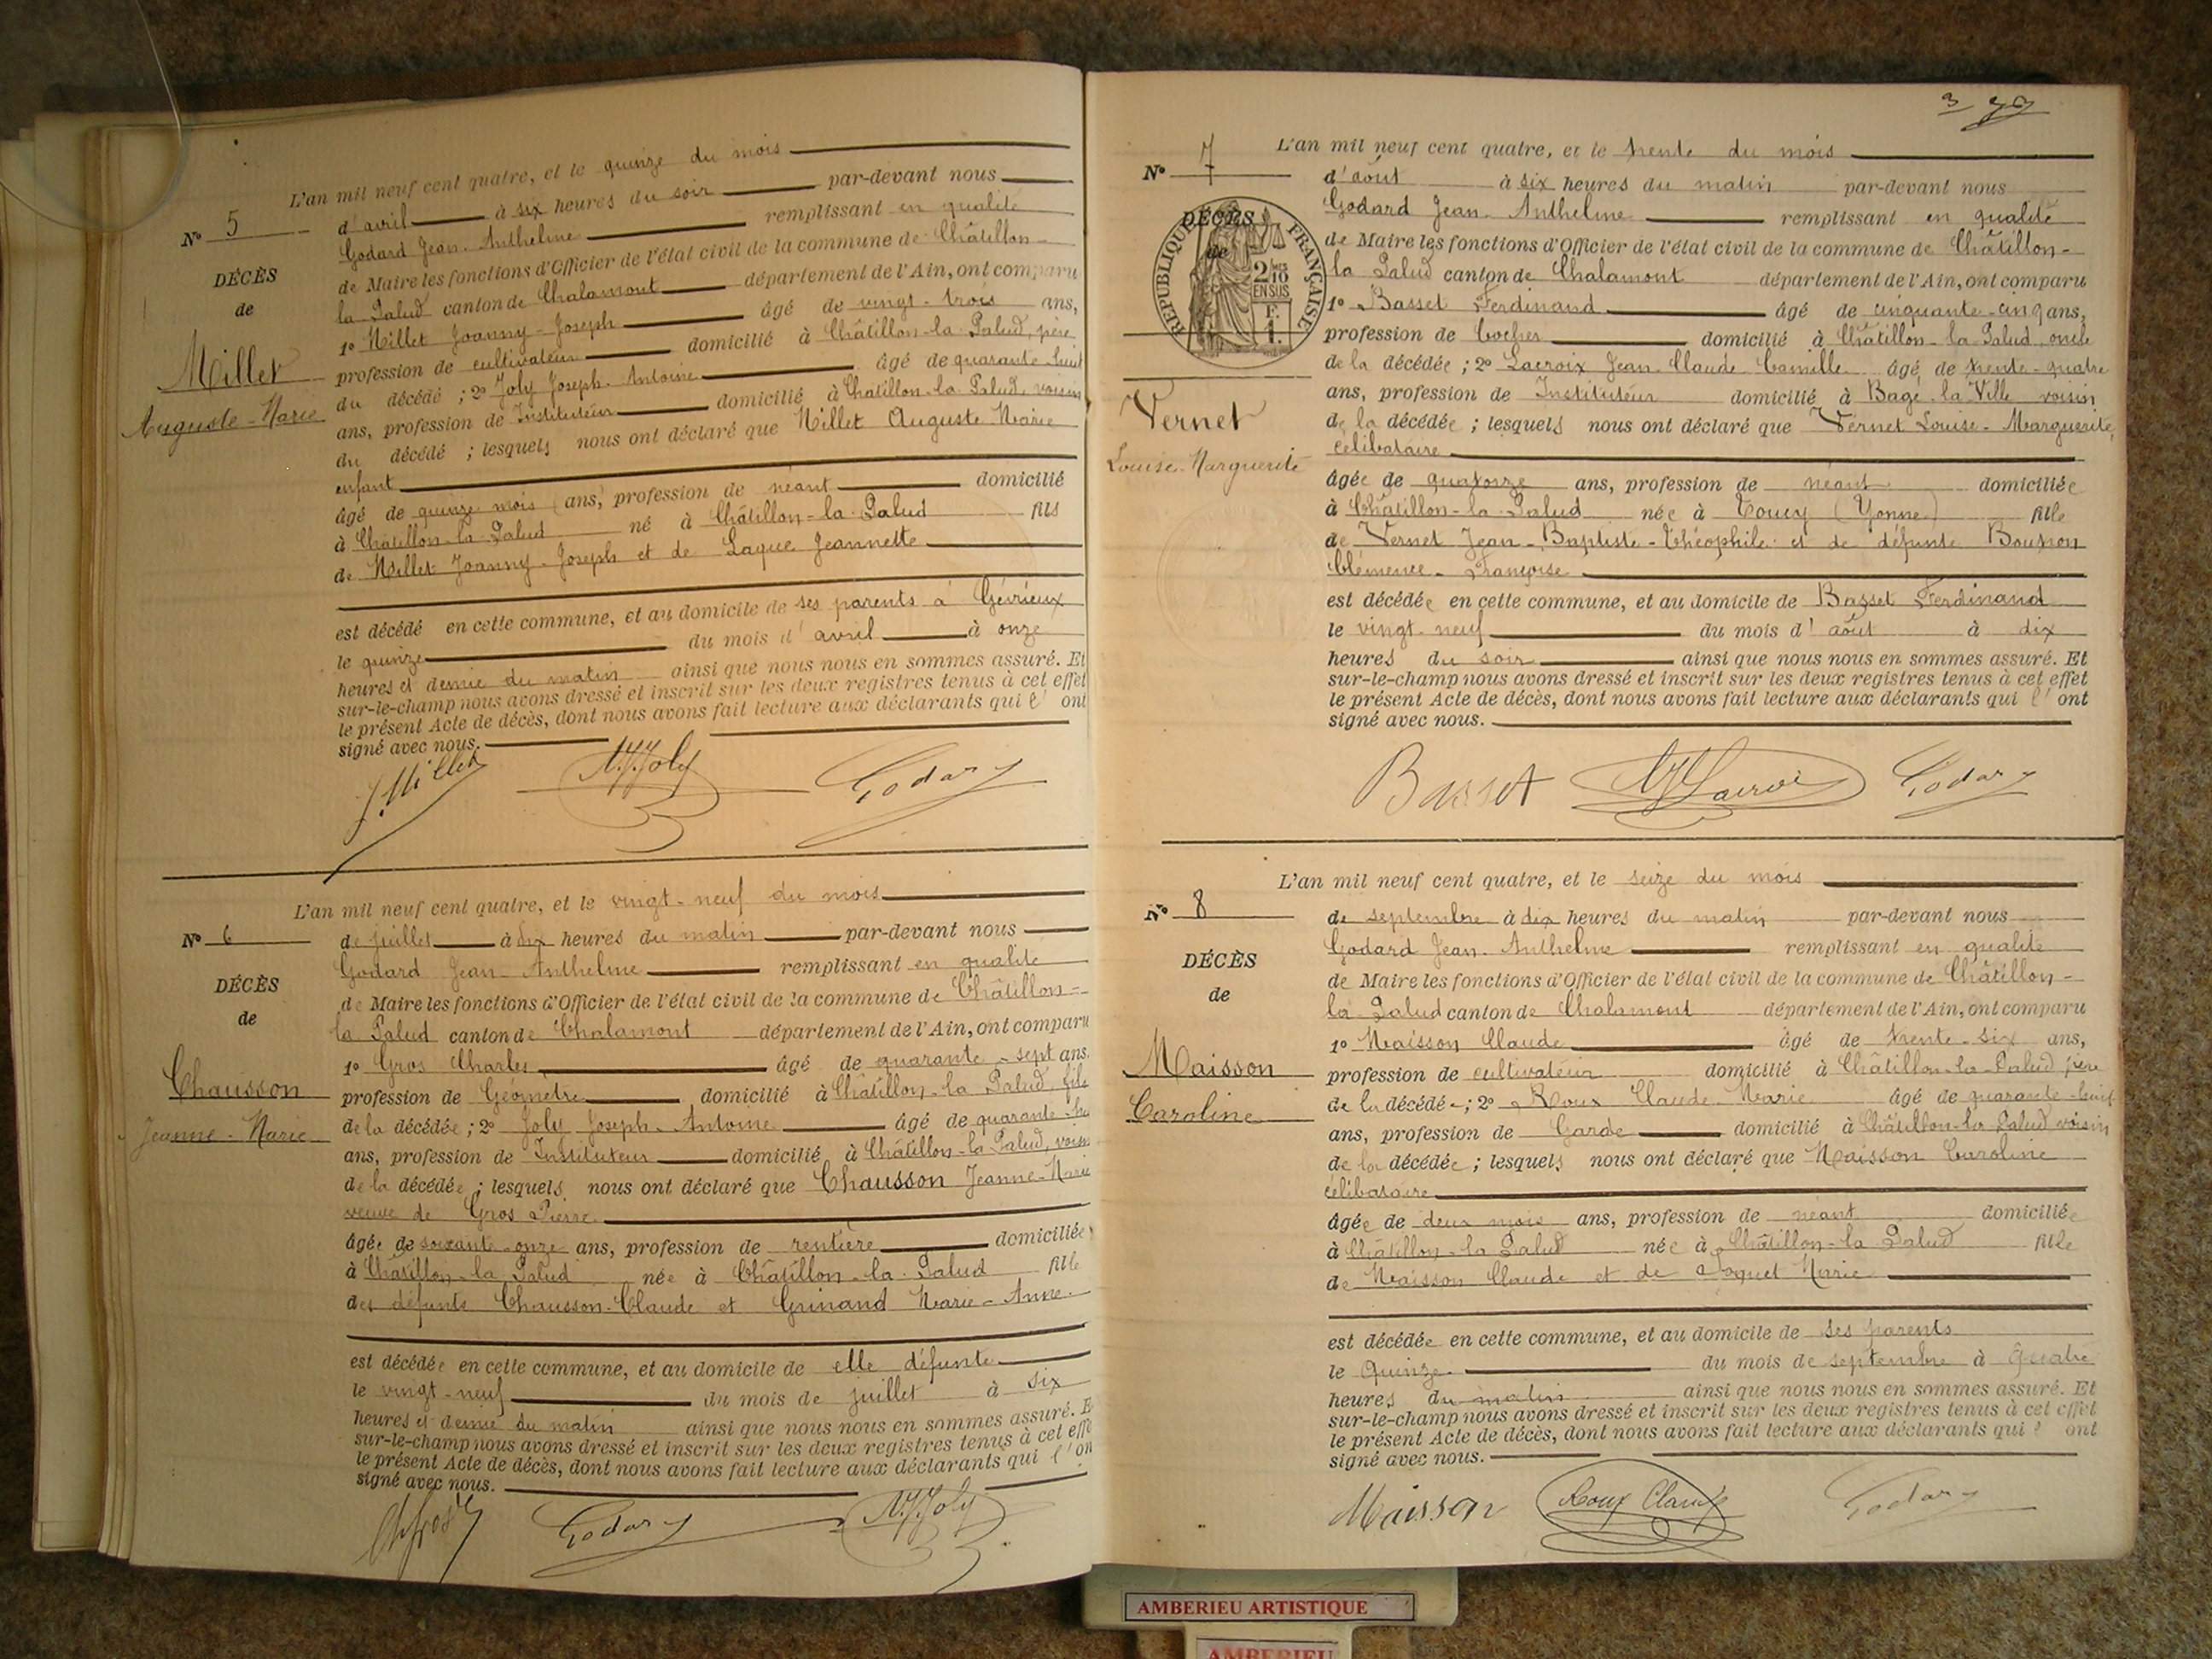 L'an mil neuf cent quatre, et le quinze du mois
N° 5 d'avril à six heures du soir par-devant nous
Godard Jean-Anthelme remplissant en qualité
DÉCÈS
de
Millet
Auguste-Marie
de Maire les fonctions d'Officier de l'état civil de la commune de Châtillon-
la Palud canton de Chalamont département de l'Ain, ont comparu
1° Millet Joanny-Joseph âgé de vingt-trois ans,
profession de cultivateur domicilié à Châtillon-la-Palud, père
du décédé ; 2° Joly Joseph-Antoine âgé de quarante-huit
ans, profession de Instituteur domicilié à Châtillon-la-Palud, voisin
du décédé ; lesquels nous ont déclaré que Millet Auguste-Marie
enfant
âgé de quinze mois (ans) profession de néant domicilié
à Châtillon-la-Palud né à Châtillon-la-Palud fils
de Millet Joanny-Joseph et de Laque Jeannette
est décédé en cette commune, et au domicile de ses parents à Gévrieux
le quinze du mois d'avril à onze
heures et demie du matin ainsi que nous nous en sommes assuré. Et
sur-le-champ nous avons dressé et inscrit sur les deux registres tenus à cet effet
le présent Acte de décès, dont nous avons fait lecture aux déclarants qui l'ont
signé avec nous.
J. Millet Joly Godard
L'an mil neuf cent quatre, et le vingt-neuf du mois
N° 6 de juillet à dix heures du matin par-devant nous
Godard Jean-Anthelme remplissant en qualité
DÉCÈS
de
Chausson
Jeanne-Marie
de Maire les fonctions d'Officier de l'état civil de la commune de Châtillon-
la Palud canton de Chalamont département de l'Ain, ont comparu
1° Gros Charles âgé de quarante-sept ans,
profession de Géomètre domicilié à Châtillon-la-Palud, fils
de la décédée ; 2° Joly Joseph-Antoine âgé de quarante-hu
ans, profession de Instituteur domicilié à Châtillon-la-Palud, voisin
de la décédée ; lesquels nous ont déclaré que Chausson Jeanne-Marie
veuve de Gros Pierre
âgée de soixante-onze ans, profession de rentière domiciliée
à Châtillon-la-Palud née à Châtillon-la-Palud fille
des défunts Chausson-Claude et Grinand Marie-Anne
est décédée en cette commune, et au domicile de elle défunte
le vingt-neuf du mois de juillet à six
heures et demie du matin ainsi que nous nous en sommes assuré. E
sur-le-champ nous avons dressé et inscrit sur les deux registres tenus à cet effe
le présent Acte de décès, dont nous avons fait lecture aux déclarants qui l'on
signé avec nous.
Godard Joly
L'an mil neuf cent quatre, et le trente du mois
N° 7 d'août à six heures du matin par-devant nous
Godard Jean-Anthelme remplissant en qualité
DÉCÈS
de
RÉPUBLIQUE FRANÇAISE
2/10
EN SUS
F.
1.
Vernet
Louise-Marguerite
de Maire les fonctions d'Officier de l'état civil de la commune de Châtillon-
la Palud canton de Chalamont département de l'Ain, ont comparu
1° Basset Ferdinand âgé de cinquante-cinq ans,
profession de Cocher domicilié à Châtillon-la-Palud, oncle
de la décédée ; 2° Lacroix Jean-Claude Camille âgé de trente-quatre
ans, profession de Instituteur domicilié à Bagé-la-Ville voisin
de la décédée ; lesquels nous ont déclaré que Vernet Louise-Marguerite,
célibataire
âgée de quatorze ans, profession de néant domiciliée
à Châtillon-la-Palud née à Toucy (Yonne) fille
de Vernet Jean-Baptiste-Théophile et de défunte
Clémence-Françoise
est décédée en cette commune, et au domicile de Basset Ferdinand
le vingt-neuf du mois d'août à dix
heures du soir ainsi que nous nous en sommes assuré. Et
sur-le-champ nous avons dressé et inscrit sur les deux registres tenus à cet effet
le présent Acte de décès, dont nous avons fait lecture aux déclarants qui l'ont
signé avec nous.
Basset Lacroix Godard
L'an mil neuf cent quatre, et le seize du mois
N° 8 de septembre à dix heures du matin par-devant nous
Godard Jean-Anthelme remplissant en qualité
DÉCÈS
de
Maisson
Caroline
de Maire les fonctions d'Officier de l'état civil de la commune de Châtillon-
la Palud canton de Chalamont département de l'Ain, ont comparu
1° Maisson Claude âgé de trente-six ans,
profession de cultivateur domicilié à Châtillon-la-Palud père
de la décédée ; 2° Roux Claude-Marie âgé de quarante-huit
ans, profession de Garde domicilié à Châtillon-la-Palud voisin
de la décédée ; lesquels nous ont déclaré que Maisson Caroline
célibataire
âgée de deux mois ans, profession de néant domiciliée
à Châtillon-la-Palud née à Châtillon-la-Palud fille
de Maisson Claude et de Marie
est décédée en cette commune, et au domicile de ses parents
le Quinze du mois de septembre à quatre
heures du matin ainsi que nous nous en sommes assuré. Et
sur-le-champ nous avons dressé et inscrit sur les deux registres tenus à cet effet
le présent Acte de décès, dont nous avons fait lecture aux déclarants qui l' ont
signé avec nous.
Maisson Roux Claude Godard
AMBERIEU ARTISTIQUE
AMBERIEU